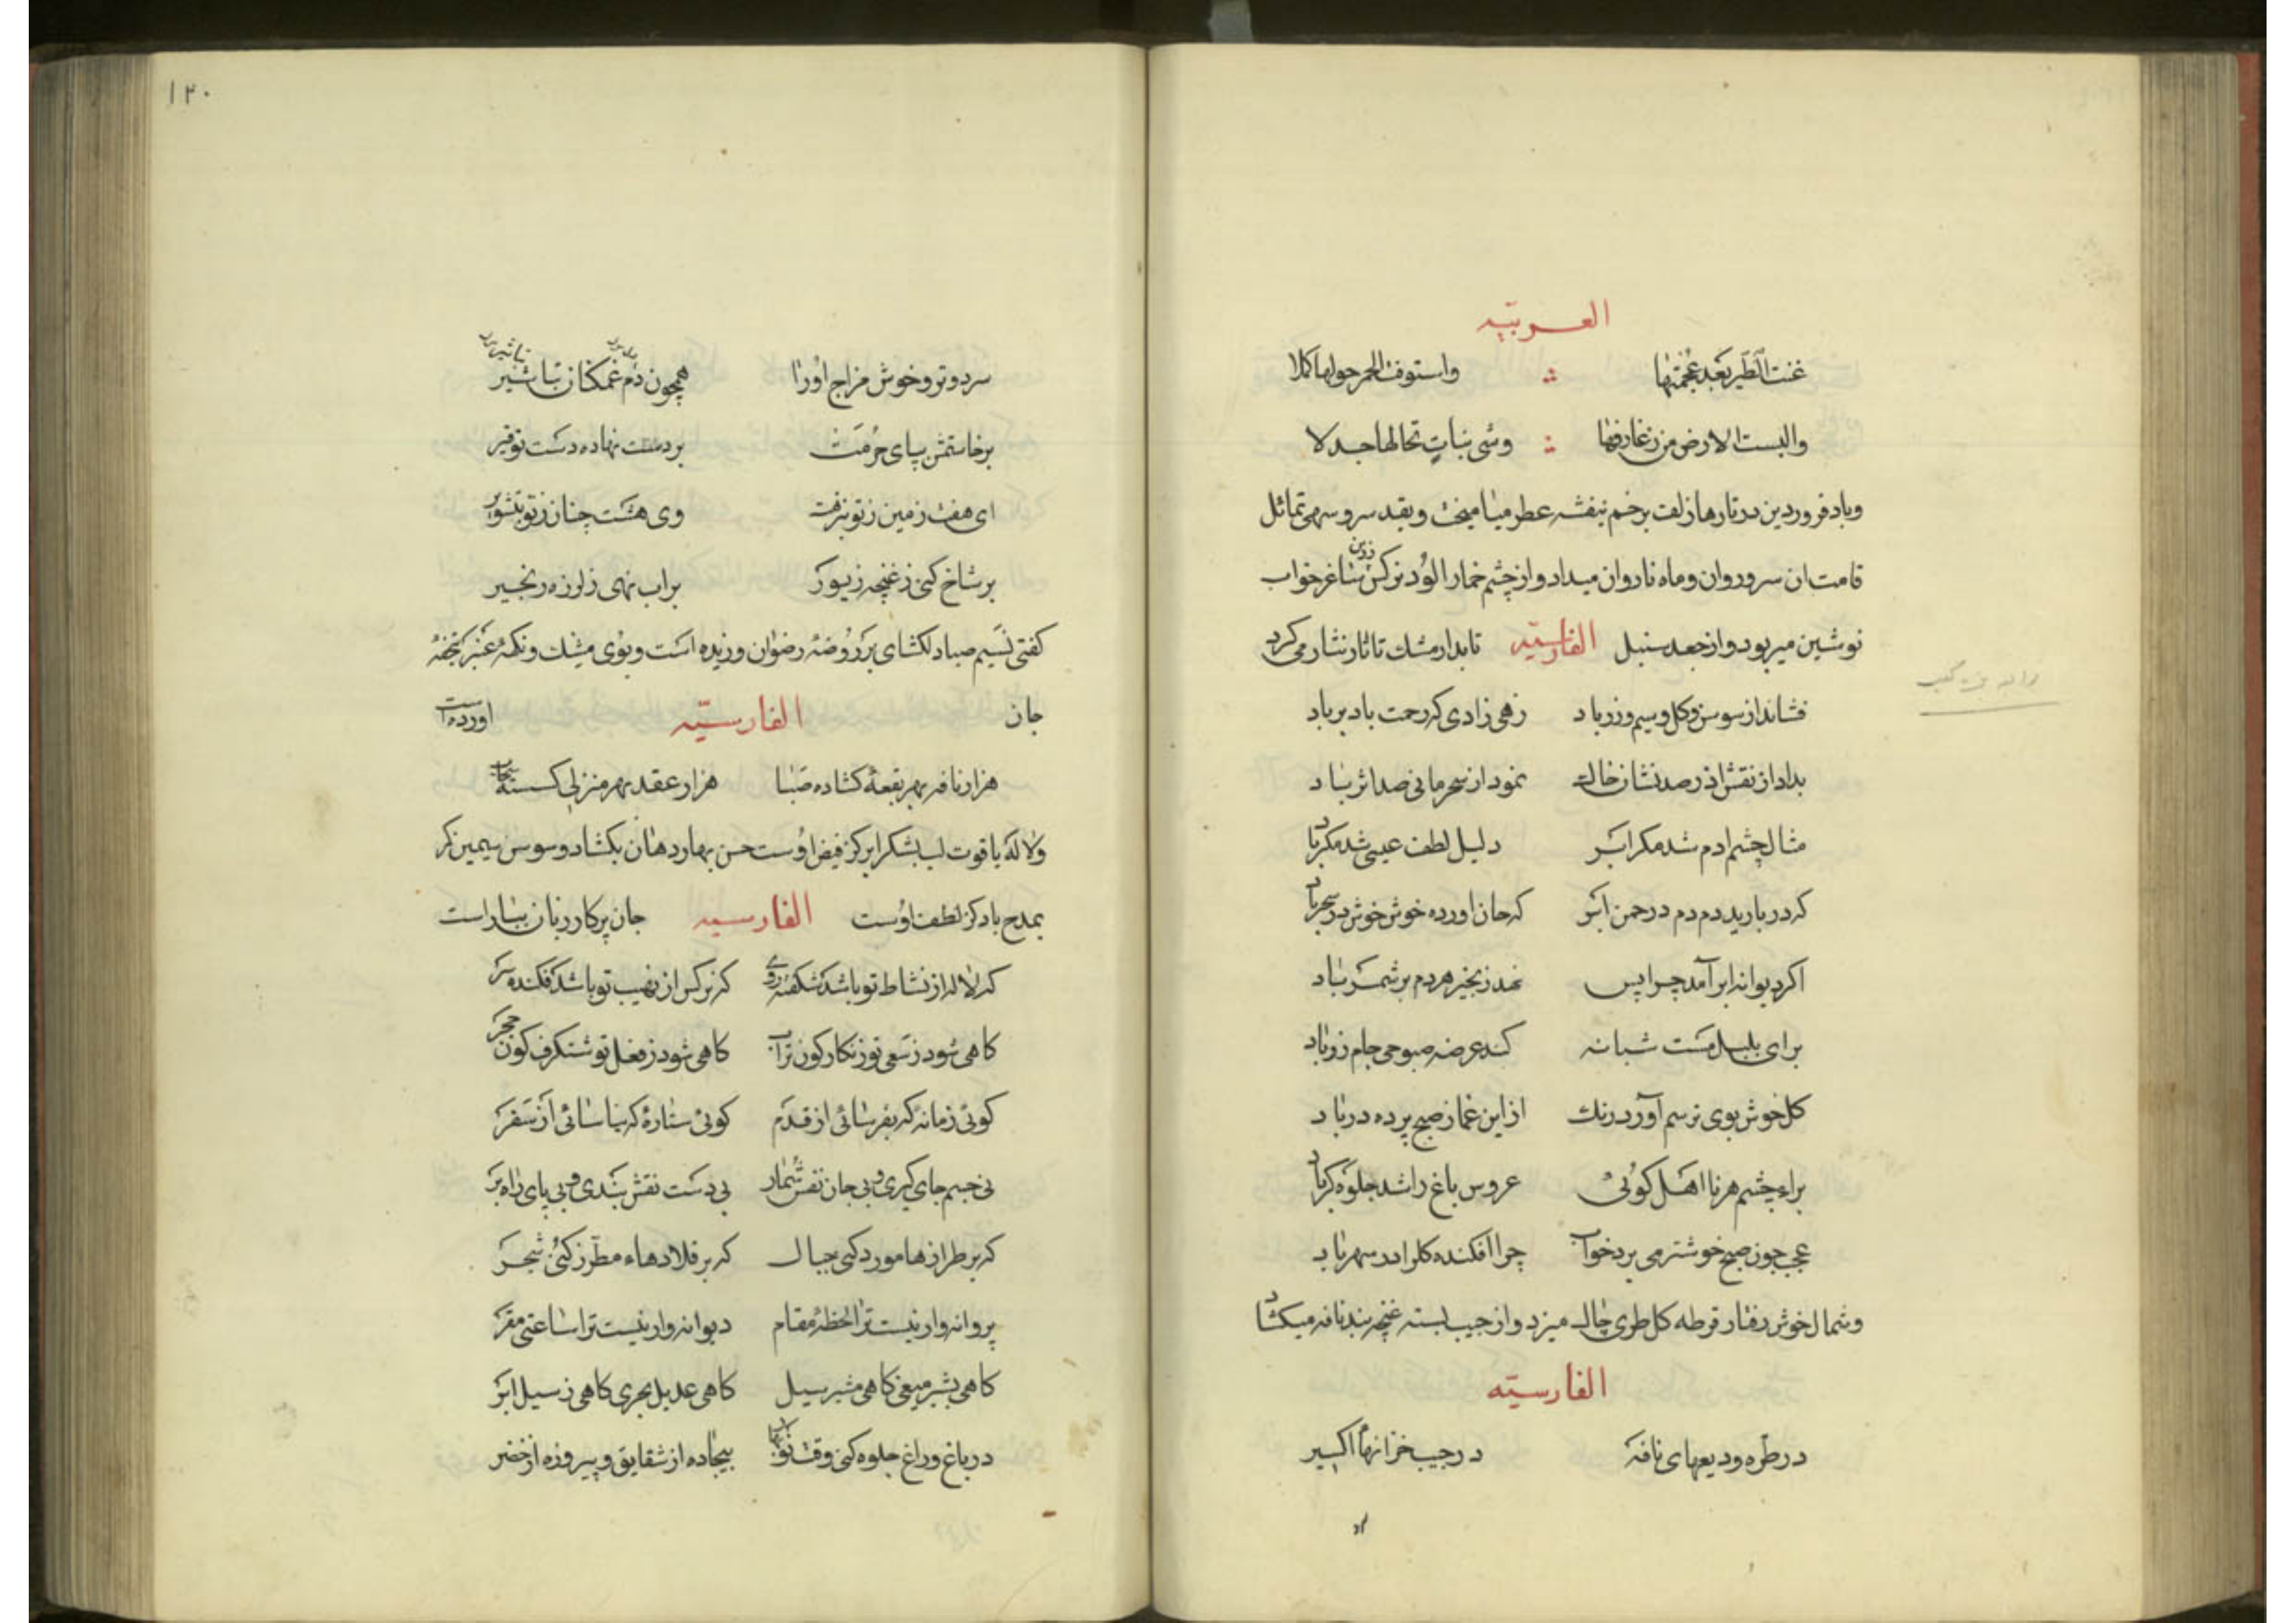 العربیّه
غنت الطیر بعد عجمتها واستوفت الخمر حولها کملا
والبست الارض من زخارفها وشی نباتٍ تخالها حللا
وباد فروردین در تارهاء زلف برخم بنفشه عطر میامیخت وبقد سرو سهی تماثل
قامت ان سرو روان وماه ناروان میداد واز چشم خمار الود نرکس زرین ساغر خواب
نوشین میربود واز جعد سنبل الفارسیّه تابدار مشك تاتار نثار می کرد
فشاند از سوسن وکل وسیم وزر باد زهی زادی که رحمت باد بر باد
بداد از نقش اذر صد نشان خاك نمود از سحر مانی صد اثر باد
مثال چشم ادم شد مکر ابر دلیل لطف عیسی شد مکر باد
که در بارید دم دم در چمن ابر که جان اورد خوش خوش در سحر باد
اکر دیوانه ابر آمد چرا پس نهد زنجیر هر دم بر شمر باد
برای بلبل مست شبانه کند عرضه صبوحی جام زر باد
کل خوش بوی ترسم آورد رنك از این غماز صبح پرده در باد
براء چشم هر نا اهل کوئی عروس باغ را شد جلوه کر باد
عجب چون صبح خوشتر می برد خواب چرا افکند کل را در سهر باد
وشمال خوش رفتار قرطه کل طری چاك میزد واز جیب بسته غنچه بند نافه میکشاد
الفارسیّه
در طرّه ودیعهای نافه در جیب خزانهاء اکسیر
۱۲۰
سرد وتر وخوش مزاج اورا همچون دم غمکنان تباشیر
برخاستمش بپای حرمت بر دست نهاده دست توقیر
ای هفت زمین ز تو بنزهت وی هشت جنان ز تو بتشویر
بر شاخ کنی ز غنچه زیور بر اب نهی ز لرزه زنجیر
کفتی نسیم صبا دلکشای بر روضهٔ رضوان وزیده است وبوی مشك ونکهة عنبر بتحفهٔ
جان الفارسیّه اورده است
هزار نافه بهر بقعهٔ کشاده صبا هزار عقد بهر منزلی کسسته سحاب
ولاله یاقوت لب بشکر ابر کز فیض اوست حسن بهار دهان بکشاد وسوسن سیمین کر
بمدح باد کز لطف اوست الفارسیه جان پرکار زبان بیاراست
که لاله از نشاط تو باشد شکفته روی که نرکس از نهیب تو باشد فکنده سر
کاهی شود ز سعی تو زنکار کون تراب کاهی شود ز فعل تو شنکرف کون حجر
کوئی زمانهٔ که بفرسائی از قدم کوئی ستارهٔ که نیاسائی از سفر
بی جسم جای کیری وبی جان نفس شمار بی دست نقش بندی وبی پای راه بر
که بر طرازها مورد کنی جبال که بر قلادهاء مطرز کنی شجر
پروانه وار نیست ترا لحظهٔ مقام دیوانه وار نیست ترا ساعتی مقر
کاهی بشیر میغی کاهی مشیر سیل کاهی عدیل بحری کاهی رسیل ابر
در باغ وراغ جلوه کنی وقت نوبهار بیجاده از شقایق وپیروزه از خضر